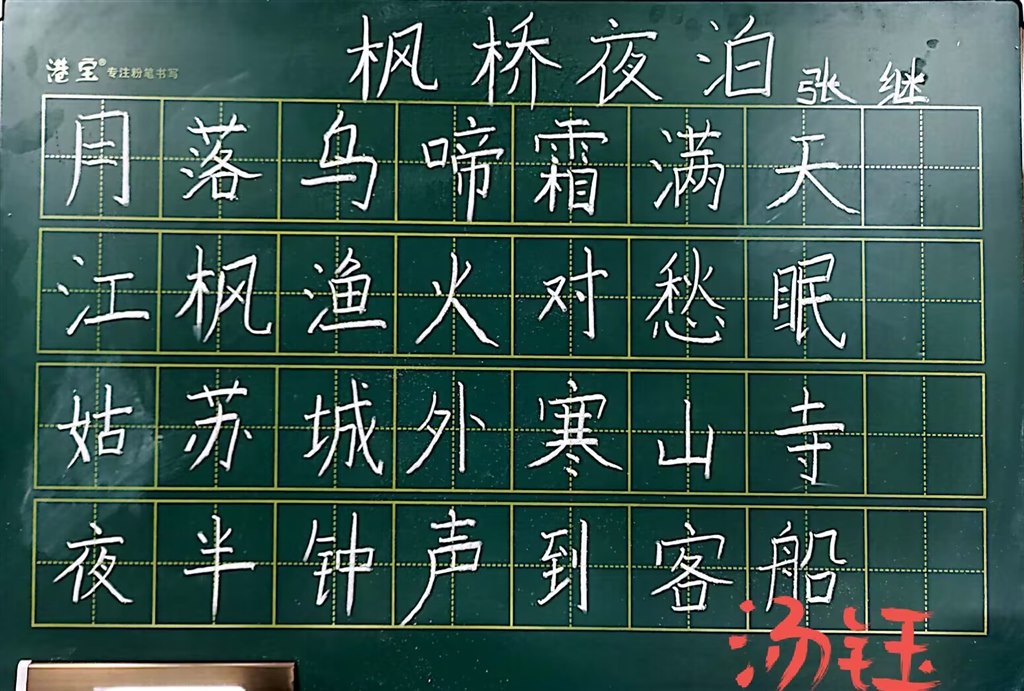 港宝® 专注粉笔书写
枫桥夜泊 张继
用落乌啼霜满天
江枫渔火对愁眠
姑苏城外寒山寺
夜半钟声到客船
汤钰